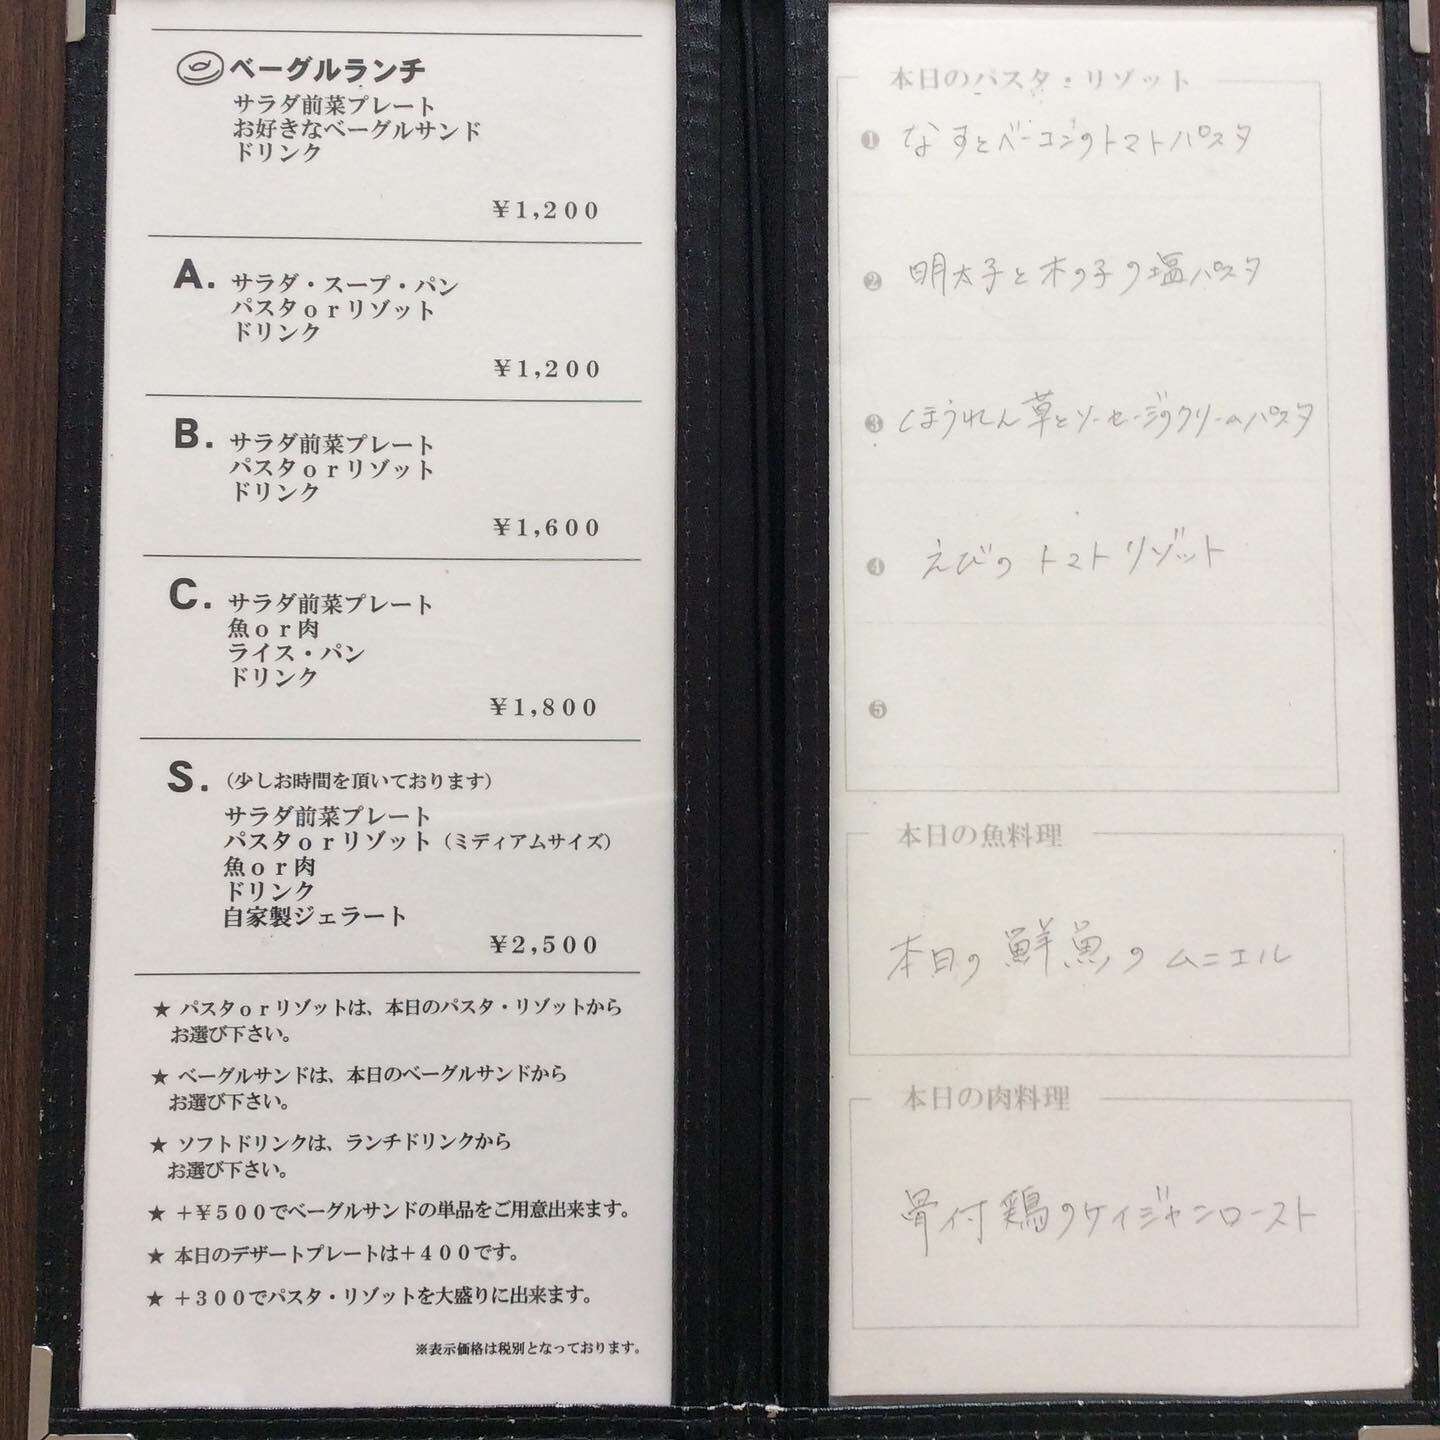 ベーグルランチ
サラダ前菜プレート
お好きなベーグルサンド
ドリンク
¥1,200
A. サラダ・スープ・パン
パスタorリゾット
ドリンク
¥1,200
B. サラダ前菜プレート
パスタorリゾット
ドリンク
¥1,600
C. サラダ前菜プレート
魚or肉
ライス・パン
ドリンク
¥1,800
S. (少しお時間を頂いております)
サラダ前菜プレート
パスタorリゾット(ミディアムサイズ)
魚or肉
ドリンク
自家製ジェラート
¥2,500
★ パスタorリゾットは、本日のパスタ・リゾットから
お選び下さい。
★ ベーグルサンドは、本日のベーグルサンドから
お選び下さい。
★ ソフトドリンクは、ランチドリンクから
お選び下さい。
★ +¥500でベーグルサンドの単品をご用意出来ます。
★ 本日のデザートプレートは+400です。
★ +300でパスタ・リゾットを大盛りに出来ます。
※表示価格は税別となっております。
本日のパスタ・リゾット
❶ なすとベーコンのトマトパスタ
❷ 明太子と木の子の塩パスタ
❸ ほうれん草とソーセージのクリームパスタ
❹ えびのトマトリゾット
❺
本日の魚料理
本日の鮮魚のムニエル
本日の肉料理
骨付鶏のケイジャンロースト